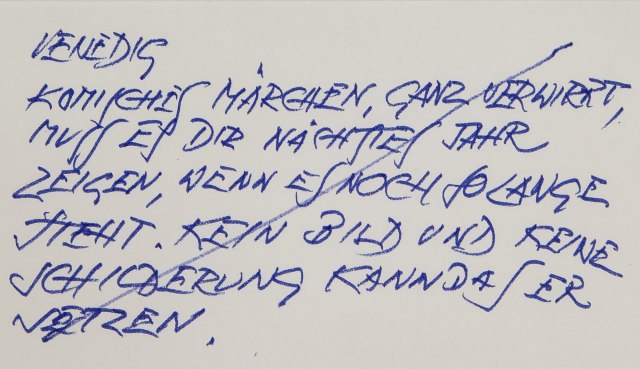 VENEDIG
KOMISCHES MÄRCHEN, GANZ VERWIRRT,
MUSS ES DIR NÄCHSTES JAHR
ZEIGEN, WENN ES NOCH SO LANGE
STEHT. KEIN BILD UND KEINE
SCHILDERUNG KANN DAS ER
SETZEN.